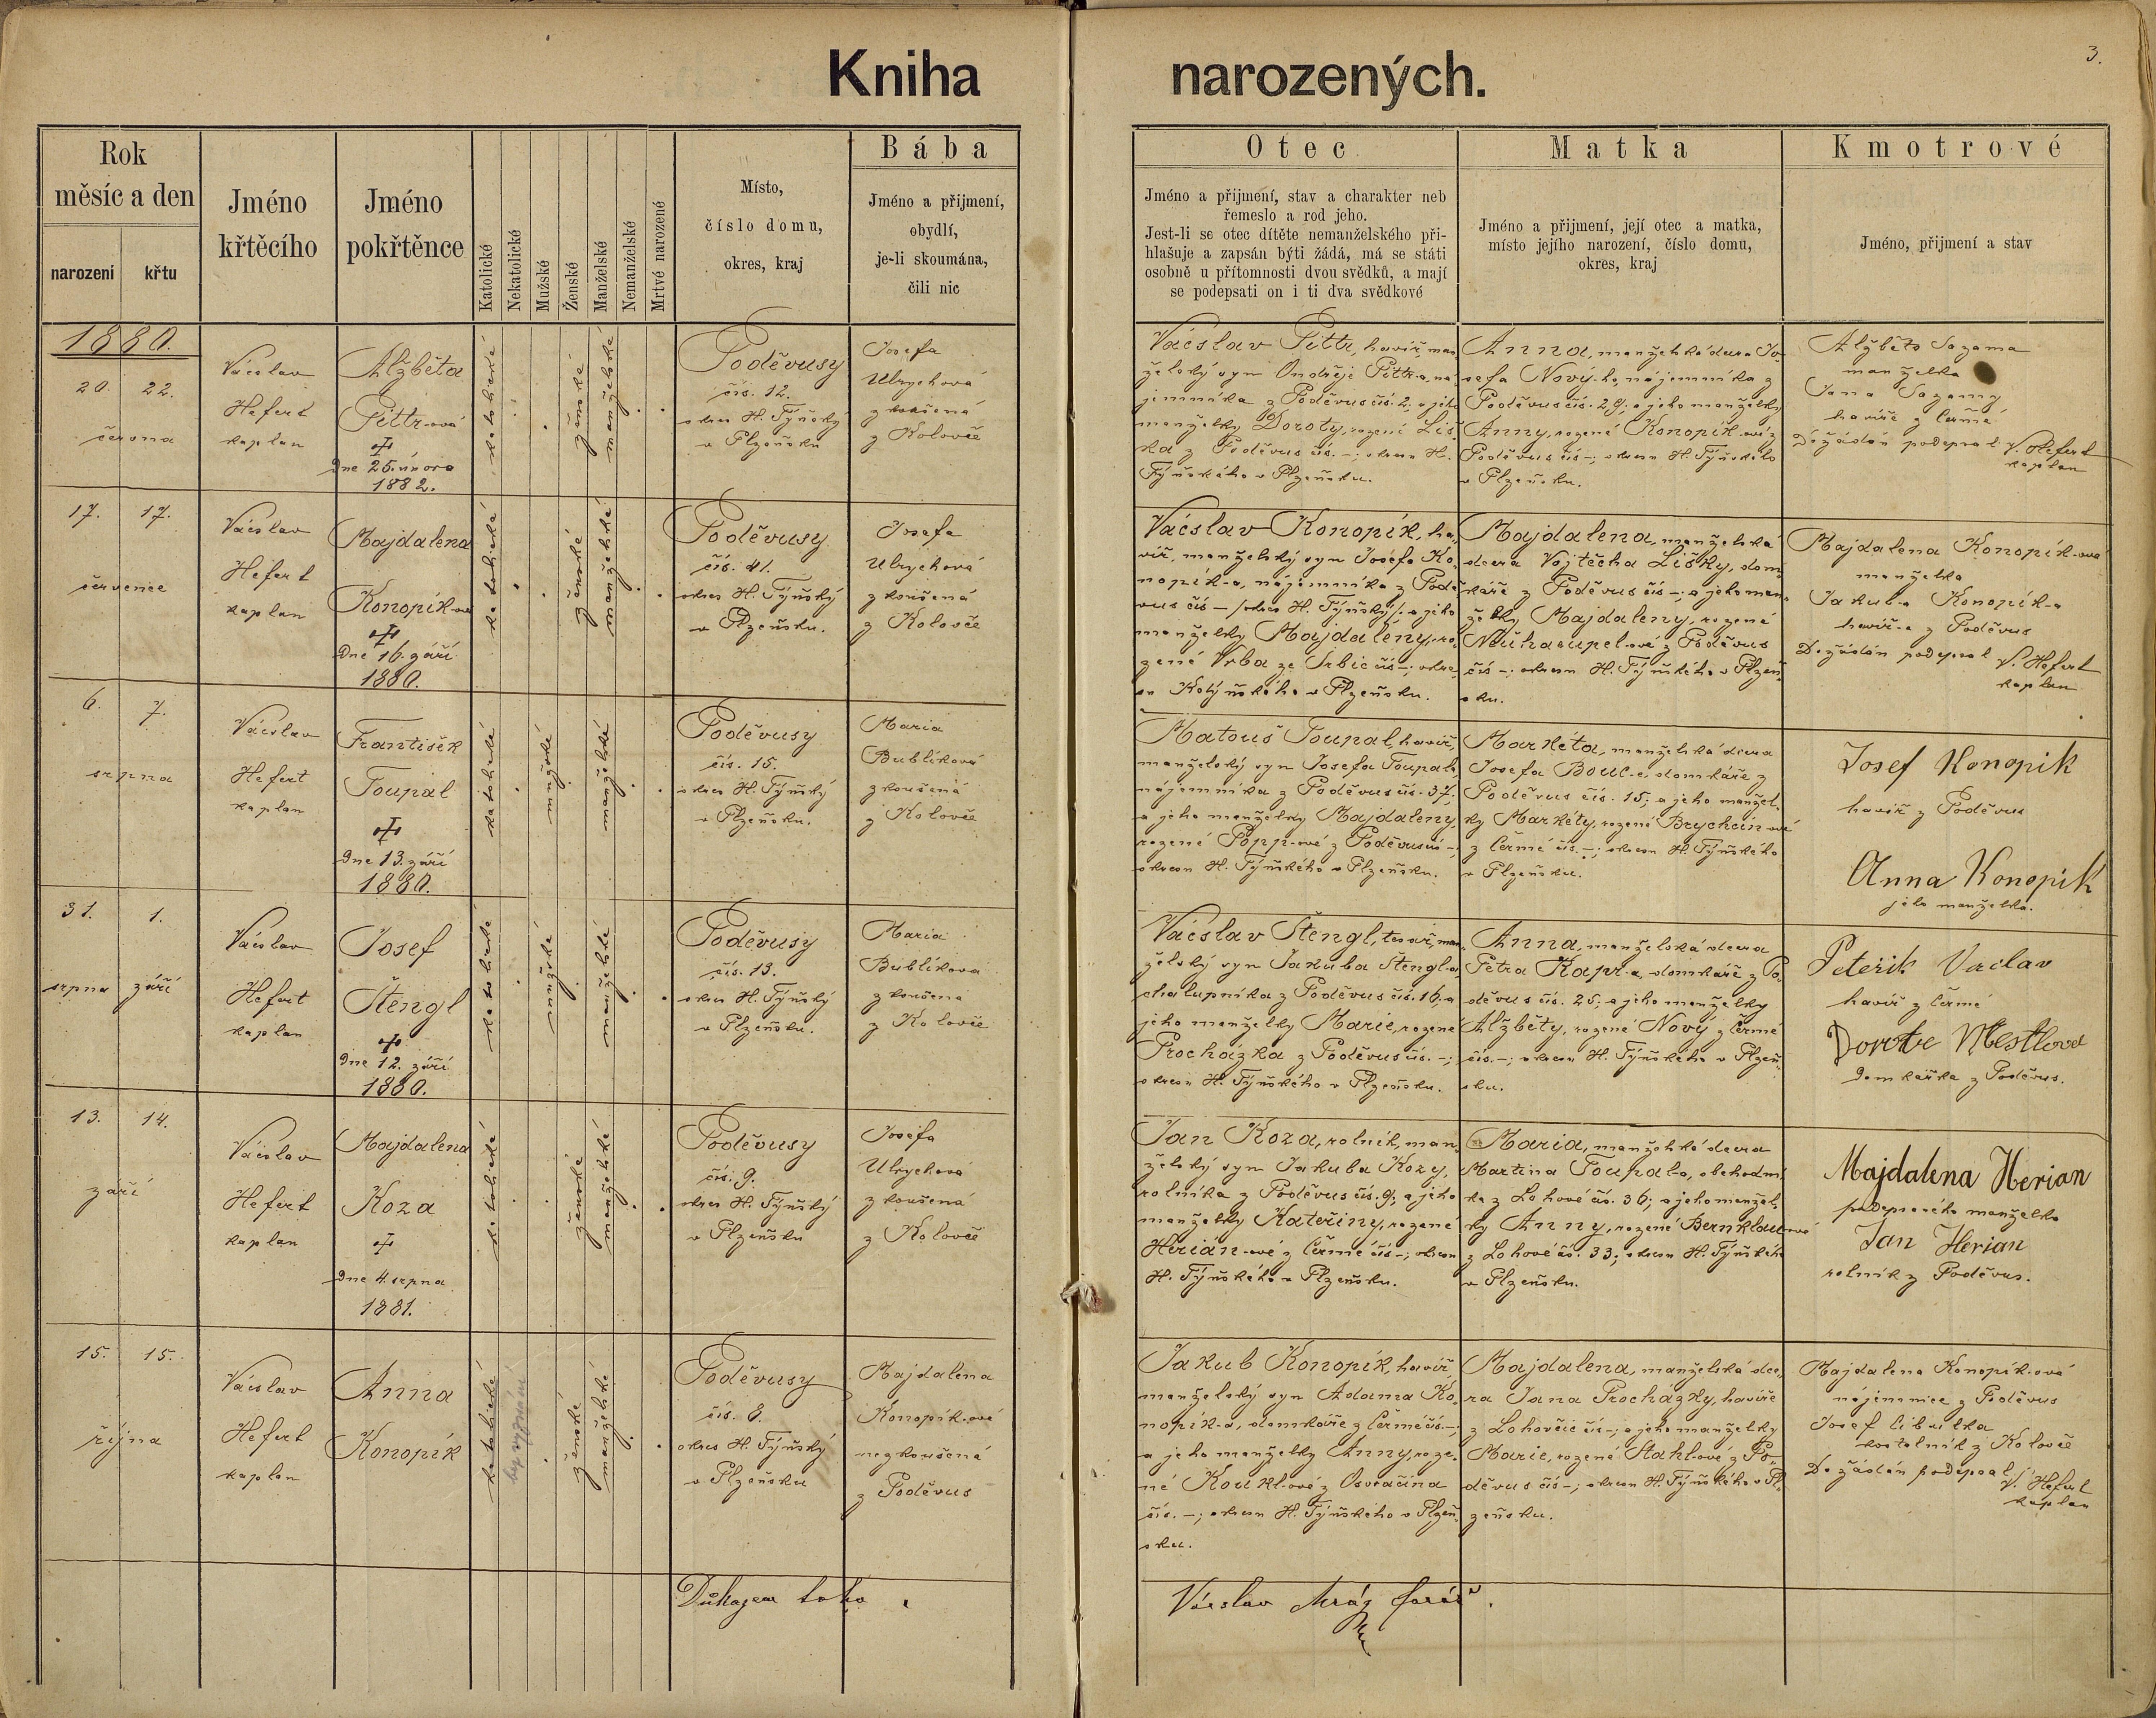 3.
Kniha narozených.
Rok
měsíc a den
narození
křtu
Jméno
křtěcího
Jméno
pokřtěnce
Katolické
Nekatolické
Mužské
Ženské
Manželské
Nemanželské
Mrtvé narozené
Místo,
číslo domu,
okres, kraj
Bába
Jméno a přijmení,
obydlí,
je-li skoumána,
čili nic
Otec
Jméno a přijmení, stav a charakter neb
řemeslo a rod jeho.
Jest-li se otec dítěte nemanželského při-
hlašuje a zapsán býti žádá, má se státi
osobně u přítomnosti dvou svědků, a mají
se podepsati on i ti dva svědkové
Matka
Jméno a přijmení, její otec a matka,
místo jejího narození, číslo domu,
okres, kraj
Kmotrové
Jméno, přijmení a stav
1880.
20. 22.
června
Václav
Hefert
kaplan
Alžběta
Pittr-ová
Dne 25. února
1882.
katolické
ženské
manželské
Poděvusy
čís. 12.
okres H. Týnský
v Plzeňsku
Josefa
Ulrychová
zkoušená
z Kolovče
Václav Pittr, havíř, man-
želský syn Ondřeje Pittr-a, ná-
jemníka z Poděvus čís. 2; a jeho
manželky Doroty, rozené Liš-
ka z Poděvus čís. –; okresu H.
Týnského v Plzeňsku.
Anna, manželská dcera Jo-
sefa Nový-ho, nájemníka z
Poděvus čís. 29; a jeho manželky
Anny, rozené Konopík-ové z
Poděvus čís –; okresu H. Týnského
v Plzeňsku.
Alžběta Sazama
manželka
Jana Sazamy
havíře z Čermé
Dožádán podepsal V. Hefert
kaplan
17. 17.
července
Václav
Hefert
kaplan
Majdalena
Konopík-ová
Dne 16. září
1880.
katolické
ženské
manželské
Poděvusy
čís. 41.
okres H. Týnský
v Plzeňsku.
Josefa
Ulrychová
zkoušená
z Kolovče
Václav Konopík, ha-
víř, manželský syn Josefa Ko-
nopík-a, nájemníka z Podě-
vus čís – /okres H. Týnský/. a jeho
manželky Majdalény, ro-
zené Vrba ze Srbic čís –; okre-
su Kotýnského v Plzeňsku.
Majdalena, manželská
dcera Vojtěcha Lišky, dom-
káře z Poděvus čís –; a jeho man-
želky Majdaleny, rozené
z Poděvus
čís –; okresu H. Týnského v Plzeň-
sku.
Majdalena Konopík-ová
manželka
Jakub-a Konopík-a
havíř-e z Poděvus
Dožádán podepsal V. Hefert
kaplan
6. 7.
srpna
Václav
Hefert
kaplan
František
Toupal
Dne 13. září
1880.
katolické
mužské
manželské
Poděvusy
čís. 15.
okres H. Týnský
v Plzeňsku.
Maria
Bublíková
zkoušená
z Kolovče
Matouš Toupal, havíř,
manželský syn Josefa Toupala,
nájemníka z Poděvus čís. 37;
a jeho manželky Majdaleny,
rozené Popp-ové z Poděvus čís –;
okresu H. Týnského v Plzeňsku.
Markéta, manželská dcera
Josefa Bouc-e, domkáře z
Poděvus čís. 15; a jeho manžel-
ky Markéty, rozené Brychcín-ové
z Čermé čís. –; okresu H. Týnského
v Plzeňsku.
Josef Konopik
havíř z Poděvus
Anna Konopik
jeho manželka.
31. 1.
srpna září
Václav
Hefert
kaplan
Josef
Štengl
Dne 12. září
1880.
katolické
mužské
manželské
Poděvusy
čís. 13.
okres H. Týnský
v Plzeňsku.
Maria
Bublíkova
zkoušena
z Kolovče
Václav Štengl, tesař, man-
želský syn Jakuba Štengl-a
chalupníka z Poděvus čís. 16; a
jeho manželky Marie, rozené
Procházka z Poděvus čís. –;
okresu H. Týnského v Plzeňsku.
Anna, manželská dcera
Petra Kapr-a, domkáře z Po-
děvus čís. 25; a jeho manželky
Alžběty, rozené Nový z Čermé
čís. –; okresu H. Týnského v Plzeň-
sku.
Peterik Vaclav
havíř z Čermé
Dorote Mestlova
Domkařka z Poděvus.
13. 14.
září
Václav
Hefert
kaplan
Majdalena
Koza
Dne 4. srpna
1881.
katolické
ženské
manželské
Poděvusy
čís. 9.
okres H. Týnský
v Plzeňsku
Josefa
Ulrychová
zkoušená
z Kolovče
Jan Koza, rolník, man-
želský syn Jakuba Kozy,
rolníka z Poděvus čís. 9; a jeho
manželky Kateřiny, rozené
Herián-ové z Čermé čís –; okresu
H. Týnského v Plzeňsku.
Maria, manželská dcera
Martina Toupala, obchodní-
ka z Lohové čís. 36; a jeho manžel-
ky Anny, rozené Bernklau-ové
z Lohové čís. 33; okresu H. Týnského
v Plzeňsku.
Majdalena Herian
podepsaného manželka
Jan Herian
rolník z Poděvus.
15. 15.
října
Václav
Hefert
kaplan
Anna
Konopík
katolické
bez vyznání
ženské
manželské
Poděvusy
čís. 8.
okres H. Týnský
v Plzeňsku
Majdalena
Konopík-ová
nezkoušená
z Poděvus
Jakub Konopík, havíř,
manželský syn Adama Ko-
nopík-a, domkáře z Čermé čís –;
a jeho manželky Anny, roze-
né Koukl-ové z Osvračína
čís. –; okresu H. Týnského v Plzeň-
sku.
Majdalena, manželská dce-
ra Jana Procházky, havíře
z Lohovčic čís –; a jeho manželky
Marie, rozené Stahl-ové z Po-
děvus čís –; okresu H. Týnského v Pl-
zeňsku.
Majdalena Konopík-ová
nájemnice z Poděvus
Josef
kostelník z Kolovče
Dožádán podepsal V. Hefert
kaplan
Důkazem toho
Václav Mráz farář.